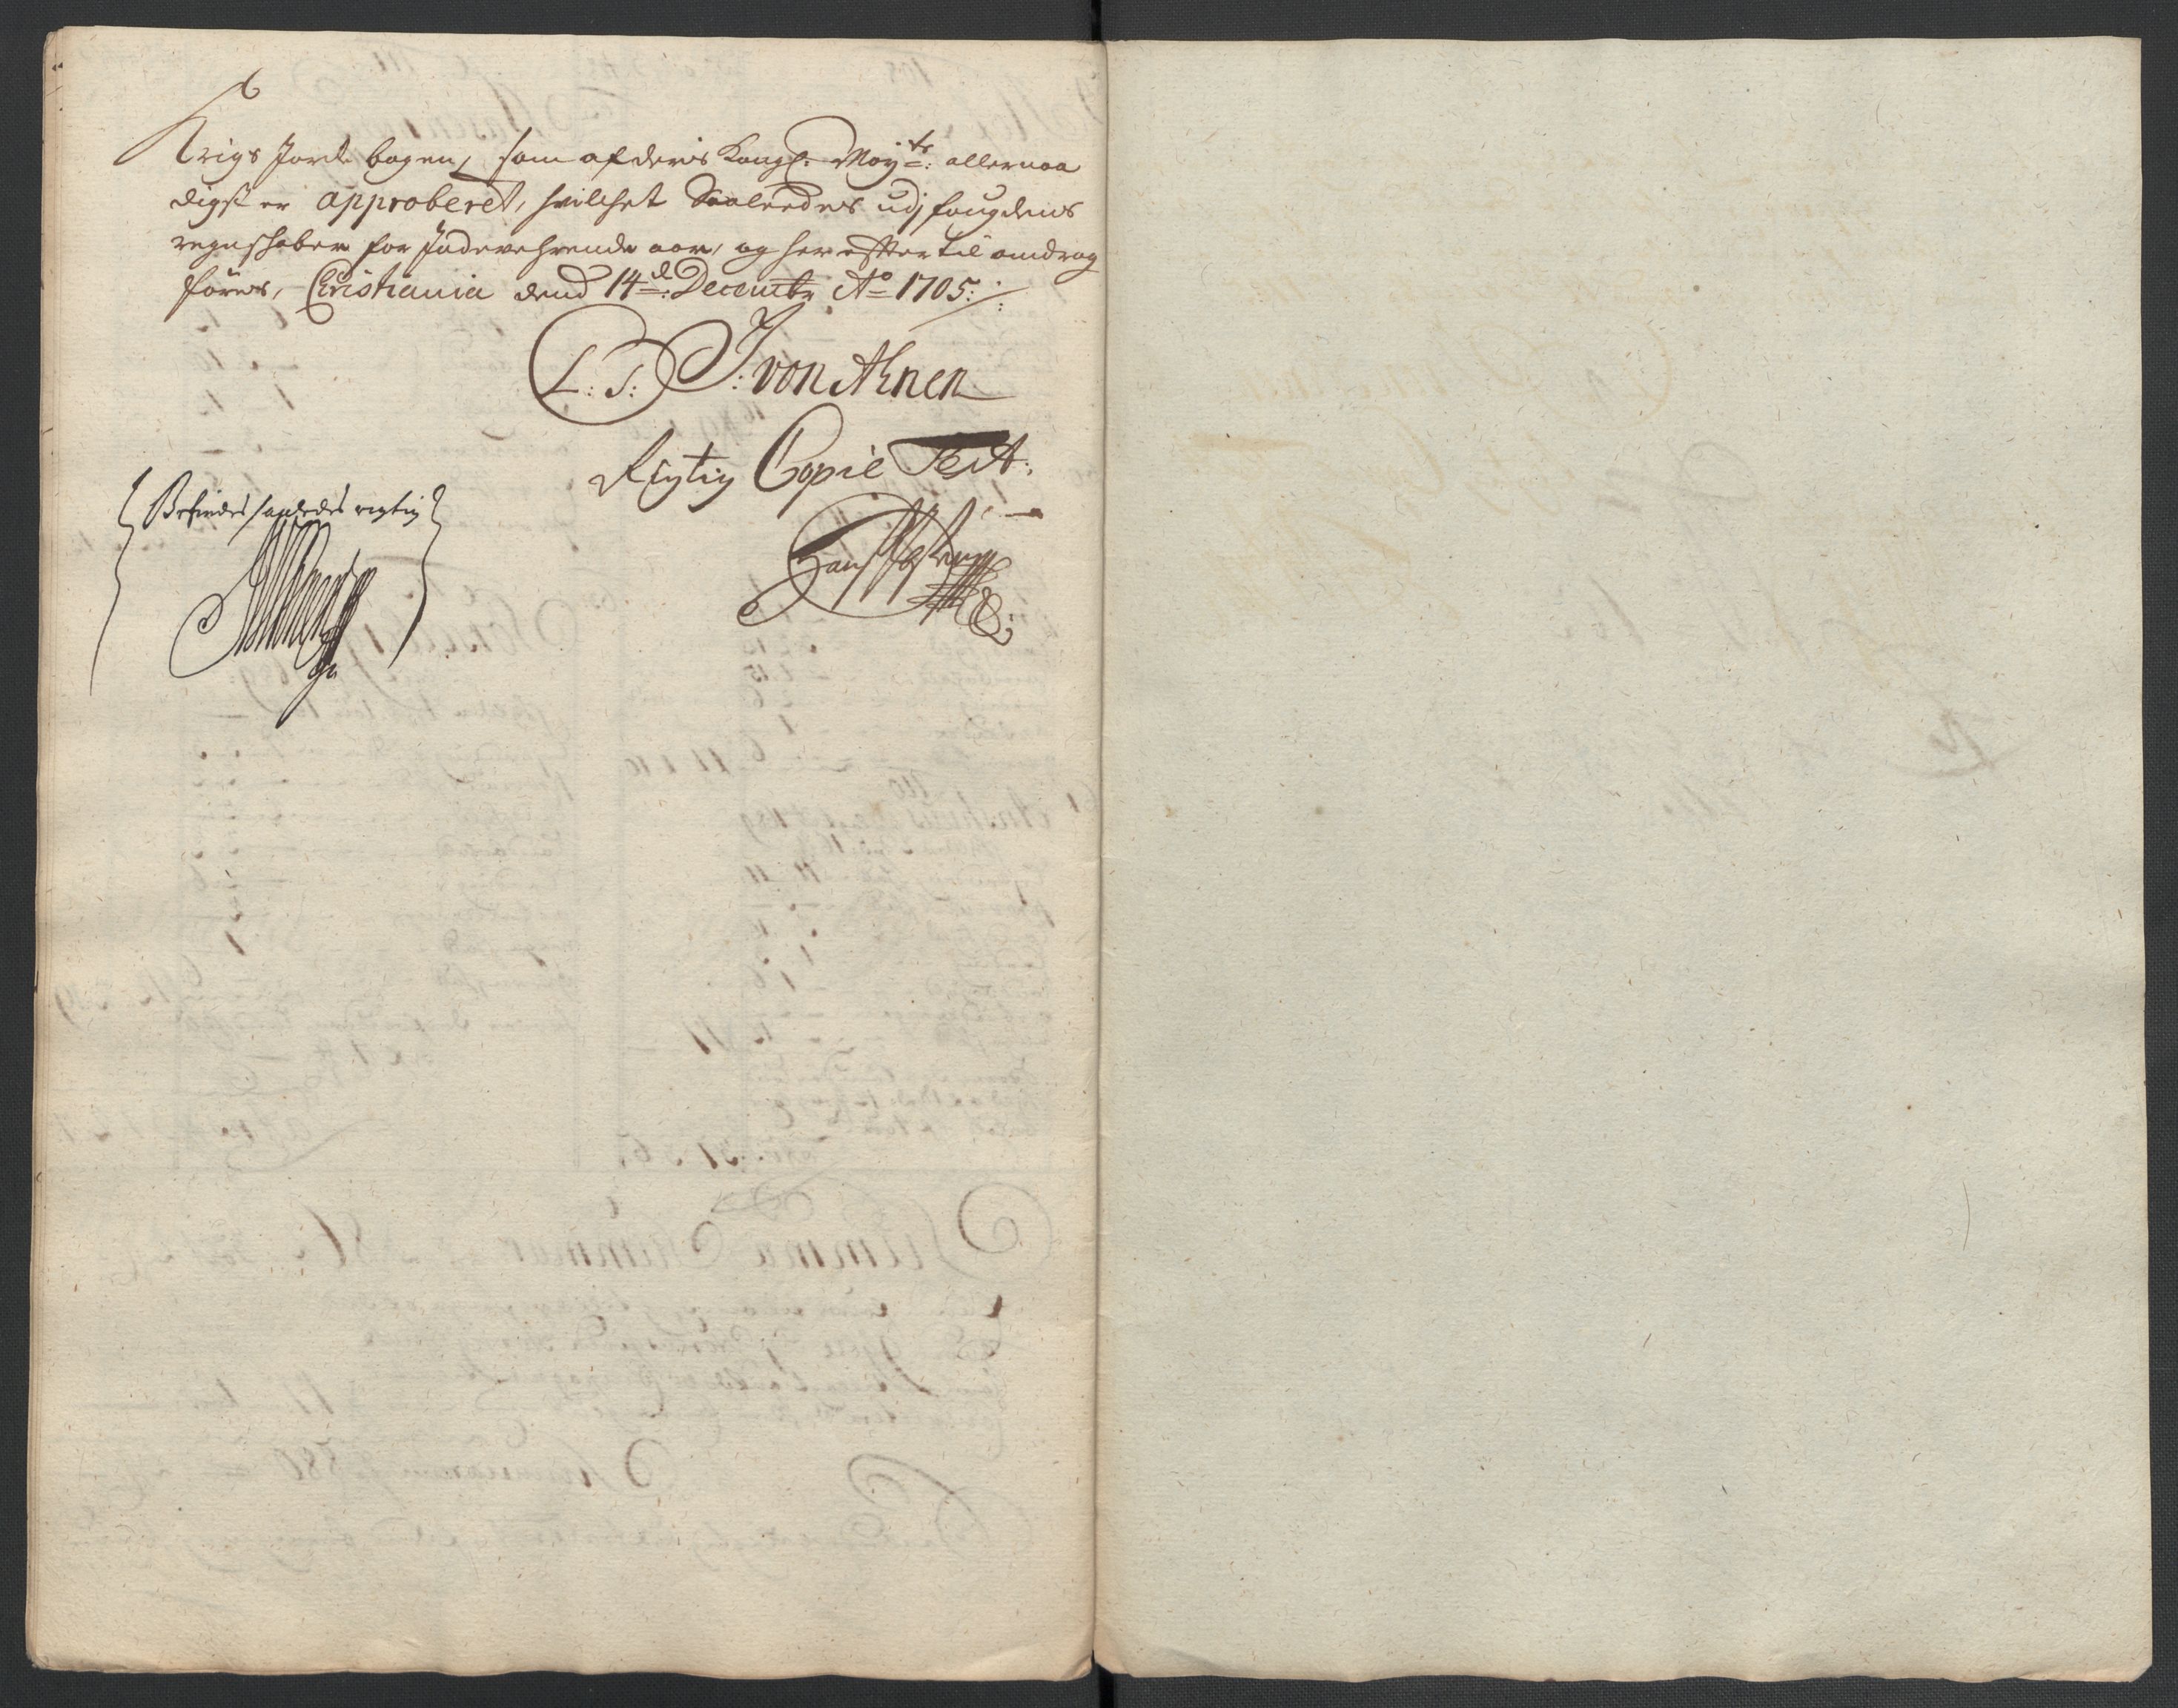 Krigs Jorde bogen, som af deris Kongl: Maÿ:ts: allernaa
digst er approberet, hvilchet Saaleedes udj fougdens
regnschaber for Indeverhrende aar, og her effter til andrag
føres, Christiania dend 14:de Decembr Ao 1705:/:
L: S: J: von Ahnen
Rigtig Copie Test:
Befindes saaledes rigtig
Hans